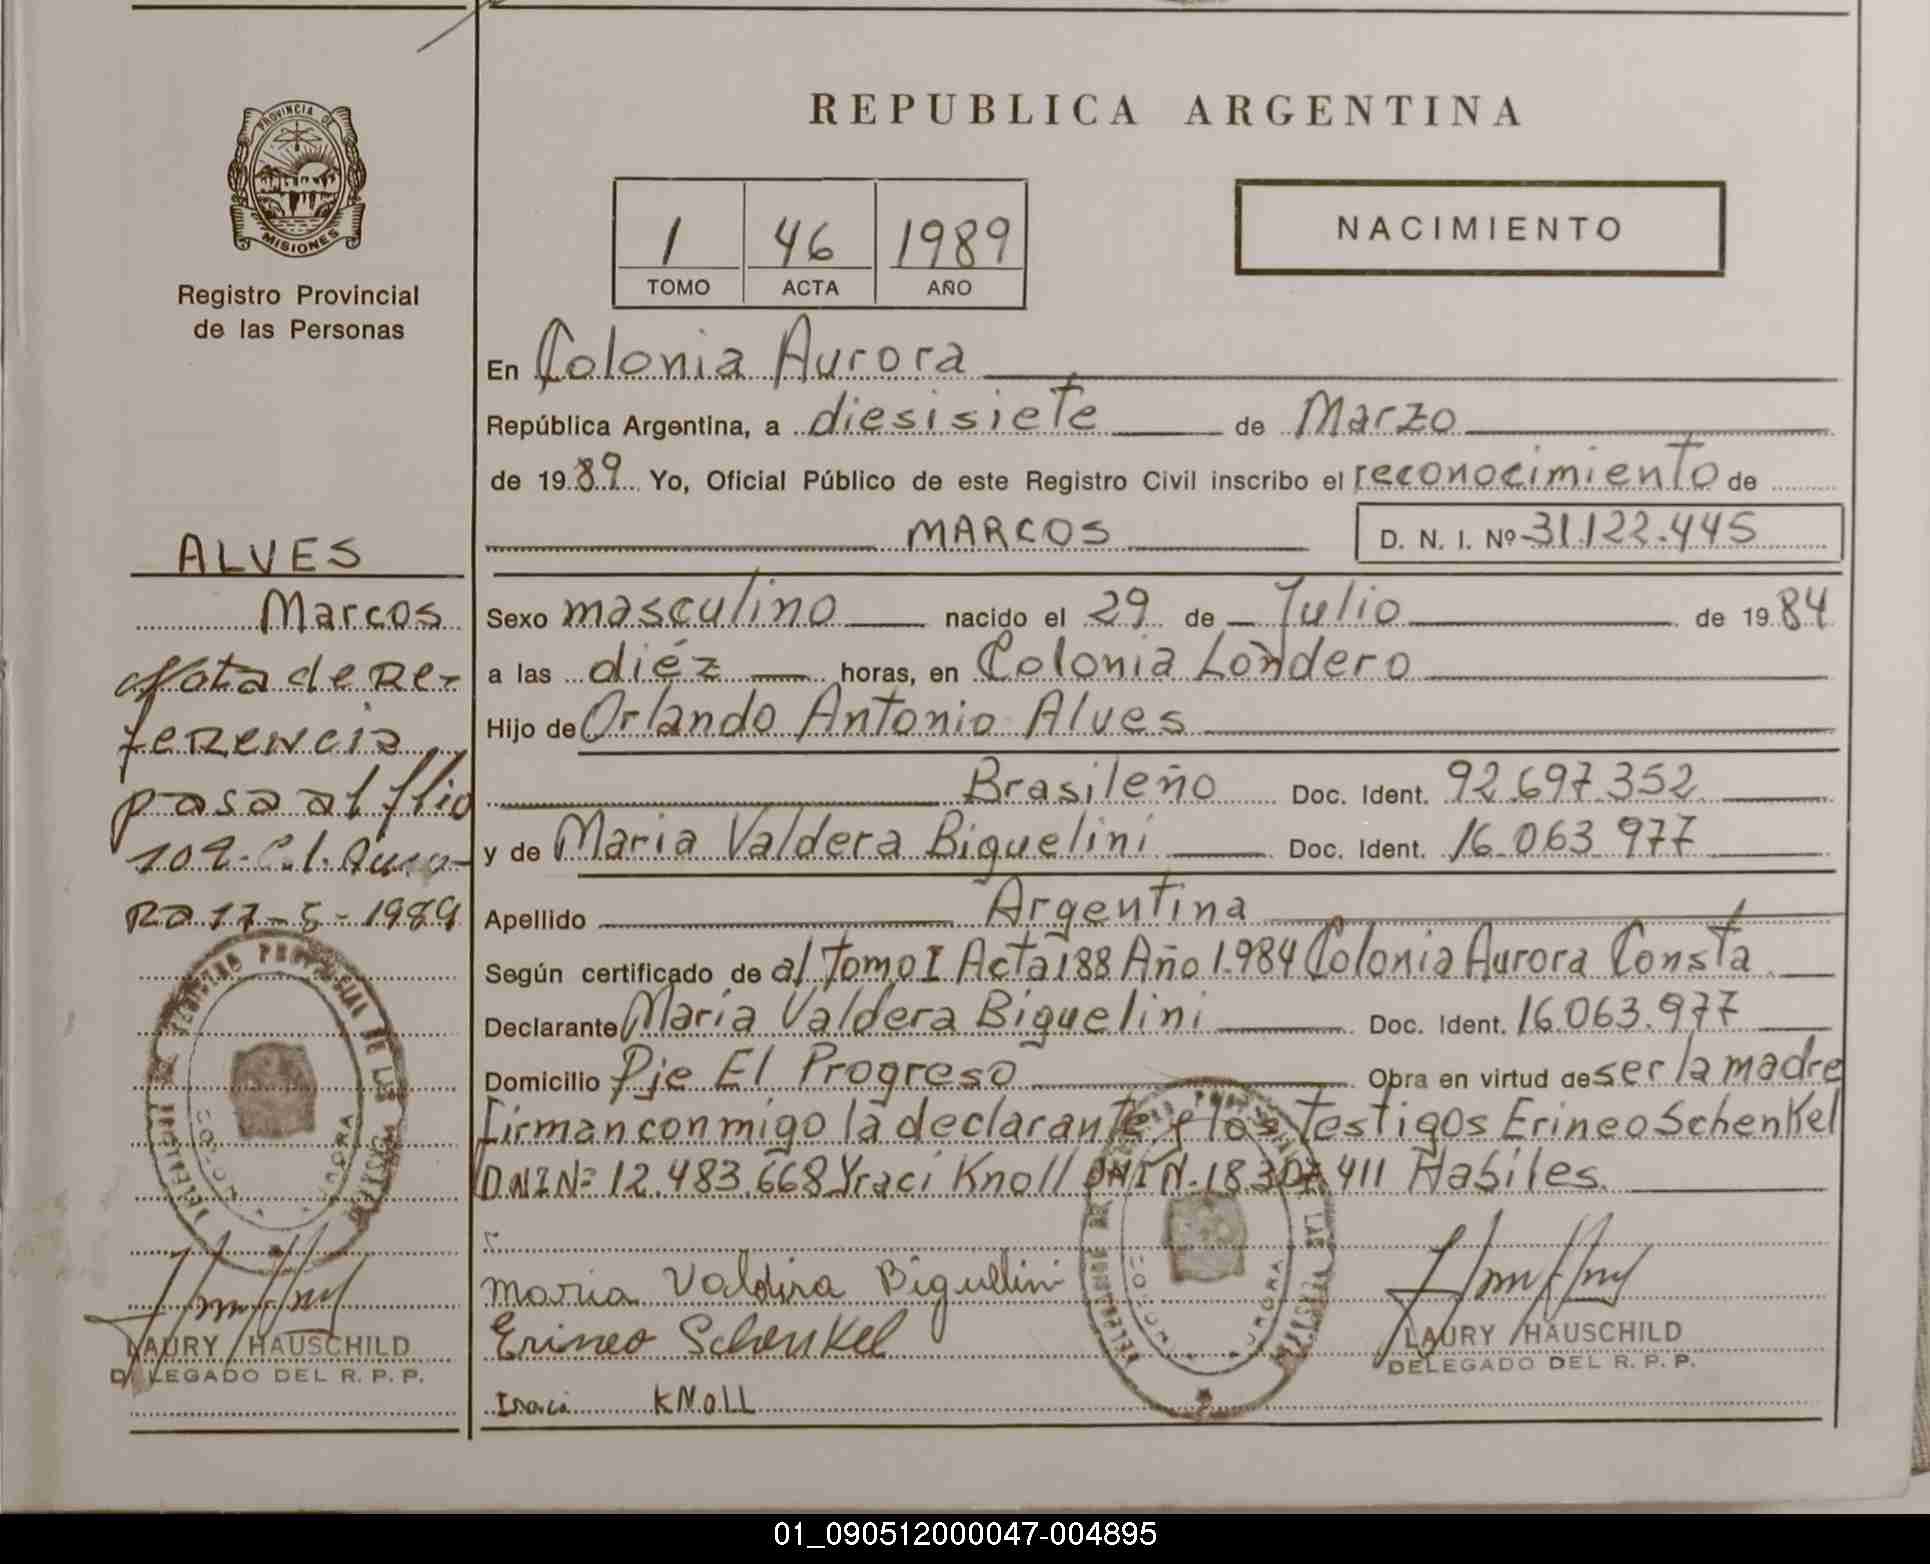 REPUBLICA ARGENTINA
PROVINCIA DE
MISIONES
Registro Provincial
de las Personas
1 46 1989
TOMO ACTA AÑO
NACIMIENTO
En Colonia Aurora
República Argentina, a diesisiete de Marzo
de 1989 Yo, Oficial Público de este Registro Civil inscribo el reconocimiento de
MARCOS D. N. I. Nº 31.122.445
Sexo masculino nacido el 29 de Julio de 1984
a las diéz horas, en Colonia Londero
Hijo de Orlando Antonio Alves
Brasileño Doc. Ident. 92.697.352
y de Maria Valdera Biguelini Doc. Ident. 16.063.977
Apellido Argentina
Según certificado de al Tomo I Acta 188 Año 1.984 Colonia Aurora Consta
Declarante María Valdera Biguelini Doc. Ident. 16.063.977
Domicilio Pje El Progreso Obra en virtud de ser la madre
Firman conmigo la declarante y los Testigos Erineo Schenkel
D.N.I Nº 12.483.668 Yraci Knoll DNI N. 18.307.411 Habiles.
Maria Valdira Biguelini
Erineo Schenkel
Iraci KNOLL
LAURY HAUSCHILD
DELEGADO DEL R. P. P.
ALVES
Marcos
Nota de Re-
ferencia
pasa al flio
109 C.l. Auro-
Ra 17-5-1989
LAURY HAUSCHILD
DELEGADO DEL R. P. P.
01_090512000047-004895